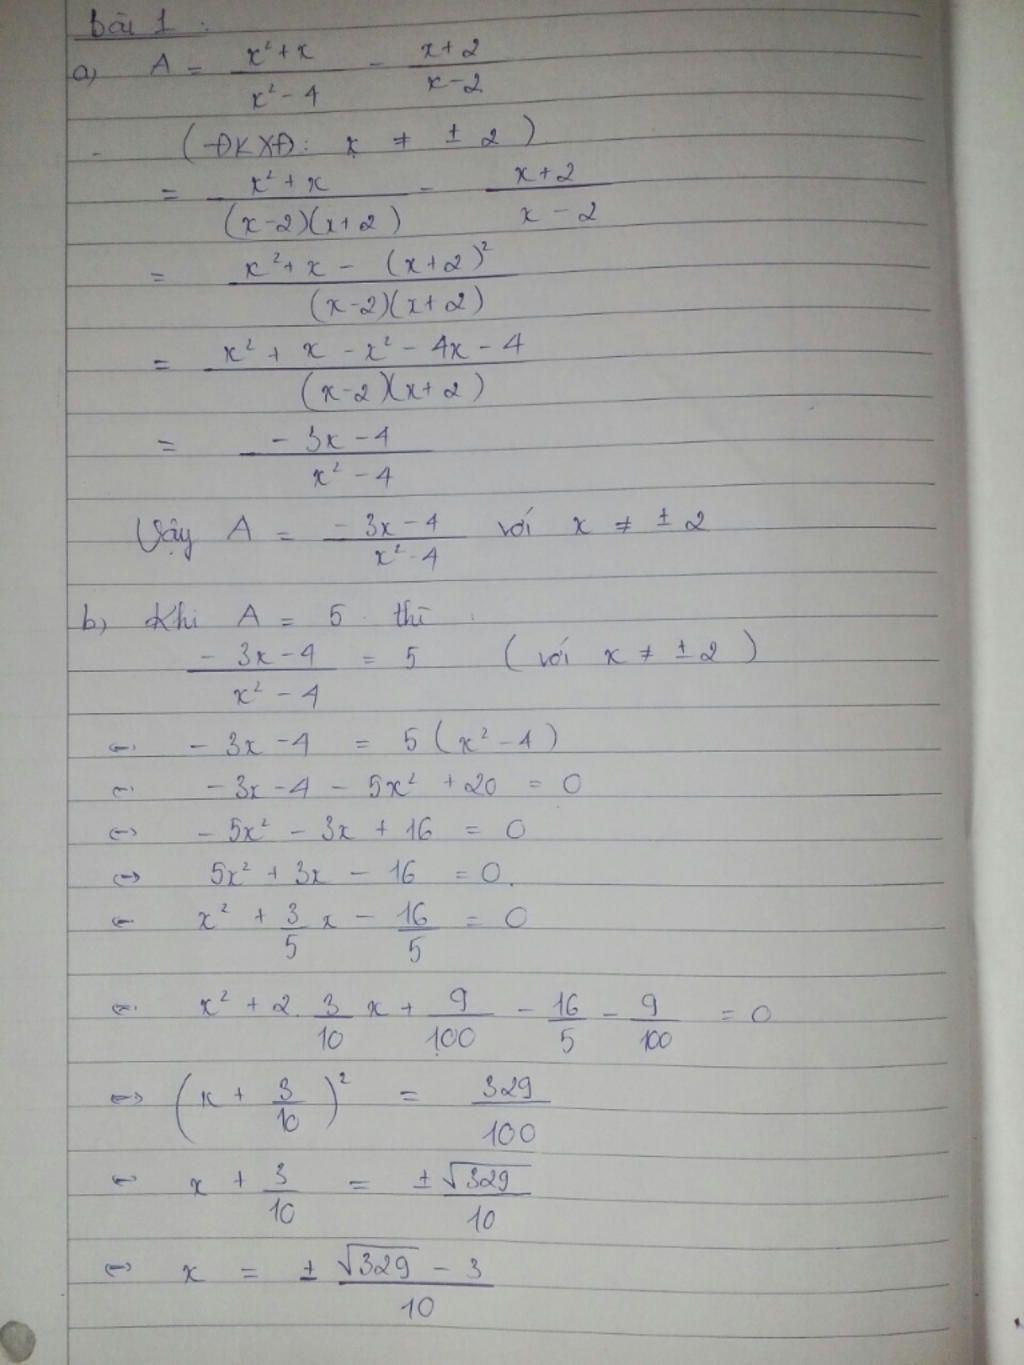 bài 1 :
a) A = (x² + x)/(x² - 4) - (x + 2)/(x - 2)
(ĐKXĐ: x ≠ ± 2)
= (x² + x)/((x-2)(x+2)) - (x+2)/(x - 2)
= (x² + x - (x+2)²)/((x-2)(x+2))
= (x² + x - x² - 4x - 4)/((x-2)(x+2))
= (- 3x - 4)/(x² - 4)
Vậy A = (- 3x - 4)/(x² - 4) với x ≠ ± 2
b) Khi A = 5 thì :
(- 3x - 4)/(x² - 4) = 5 (với x ≠ ± 2)
⇔ - 3x - 4 = 5(x² - 4)
⇔ - 3x - 4 - 5x² + 20 = 0
⇔ - 5x² - 3x + 16 = 0
⇔ 5x² + 3x - 16 = 0.
⇔ x² + 3/5 x - 16/5 = 0
⇔ x² + 2. 3/10 x + 9/100 - 16/5 - 9/100 = 0
⇔ (x + 3/10)² = 329/100
⇔ x + 3/10 = ±√329/10
⇔ x = (±√329 - 3)/10